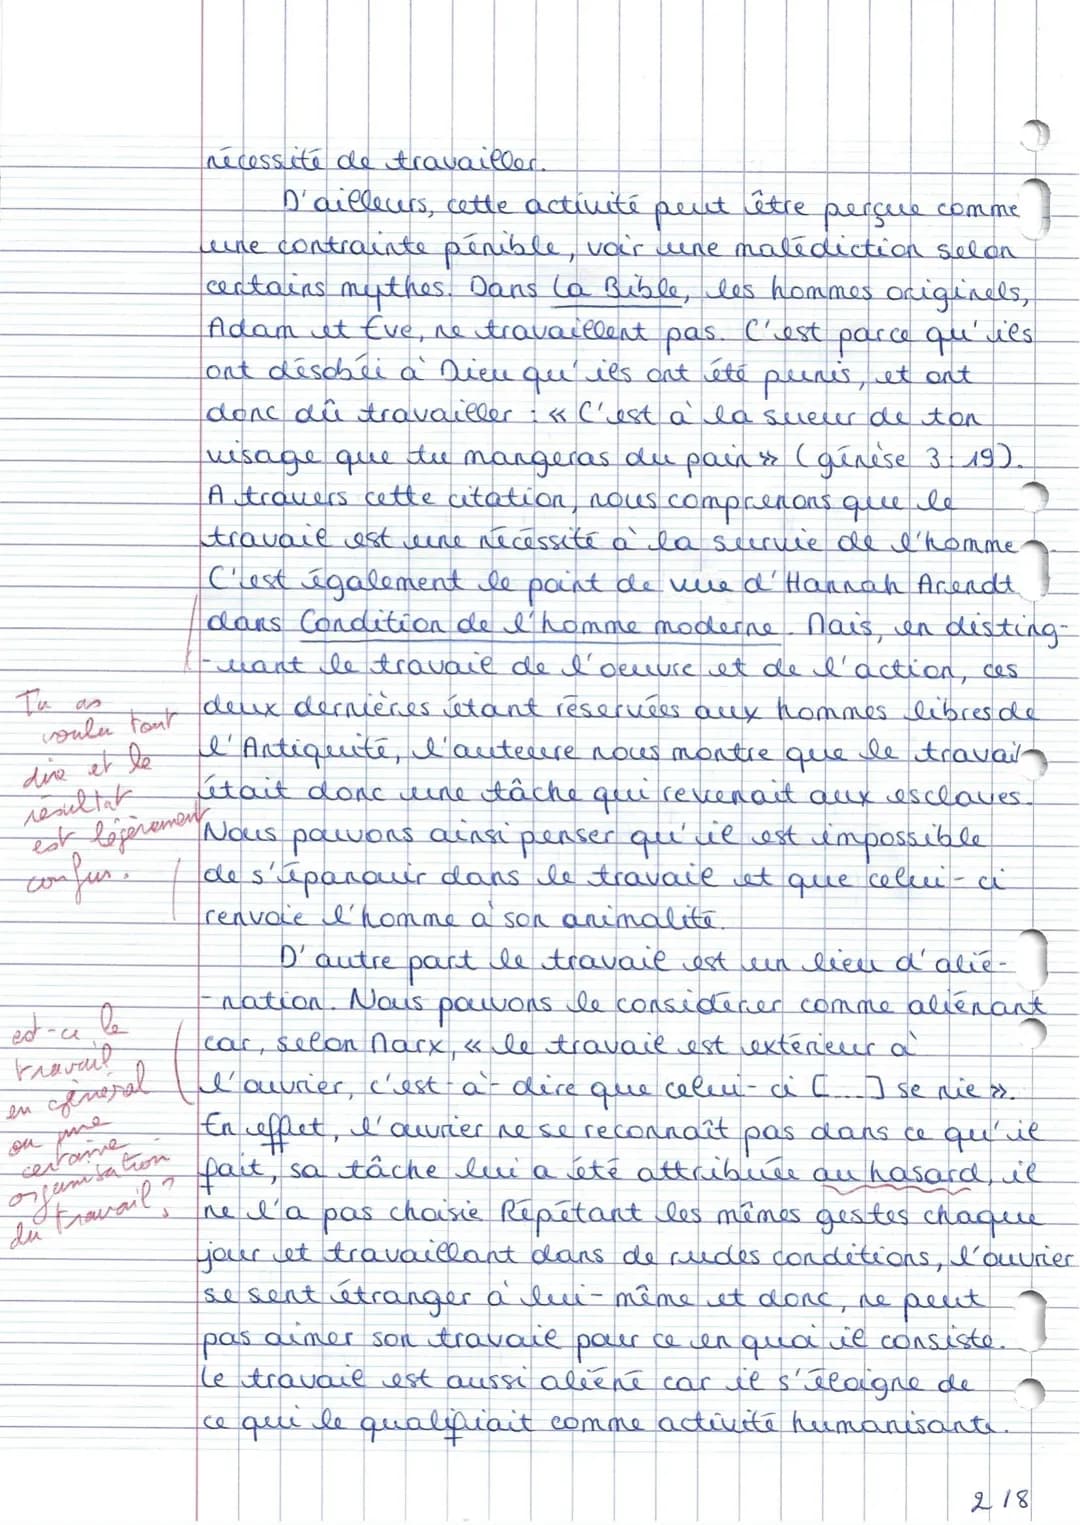 nécessité de travailler.
D'ailleurs, cette activité peut être perçue comme
une contrainte pénible, voir une malédiction selon
certains mythes. Dans La Bible, les hommes originels,
Adam et Eve, ne travaillent pas. C'est parce qu'ils
ont désobéi à Dieu qu'ils ont été punis, et ont
donc dû travailler : « C'est à la sueur de ton
visage que tu mangeras du pain » (génèse 3 : 19).
A travers cette citation, nous comprenons que le
travail est une nécéssité à la survie de l'homme.
C'est également le point de vue d'Hannah Arendt
dans Condition de l'homme moderne. Mais, en disting-
-uant le travail de l'oeuvre et de l'action, ces
deux dernières étant réservées aux hommes libres de
l'Antiquité, l'auteure nous montre que le travail
était donc une tâche qui revenait aux esclaves.
Nous pouvons ainsi penser qu'il est impossible
de s'épanouir dans le travail et que celui-ci
renvoie l'homme à son animalité.
Tu as
voulu tout
dire et le
résultat
est légèrement
confus.
D'autre part le travail est un lieu d'alié-
-nation. Nous pouvons le considérer comme aliénant
car, selon Marx, « le travail est extérieur à
l'ouvrier, c'est-à-dire que celui-ci [...] se nie ».
En effet, l'ouvrier ne se reconnaît pas dans ce qu'il
fait, sa tâche lui a été attribuée au hasard, il
ne l'a pas choisie. Répétant les mêmes gestes chaque
jour et travaillant dans de rudes conditions, l'ouvrier
se sent étranger à lui-même et donc, ne peut
pas aimer son travail pour ce en quoi il consiste.
Le travail est aussi aliéné car il s'éloigne de
ce qui le qualifiait comme activité humanisante.
est-ce le
travail
en général
ou une
certaine
organisation
du travail ?
2/8